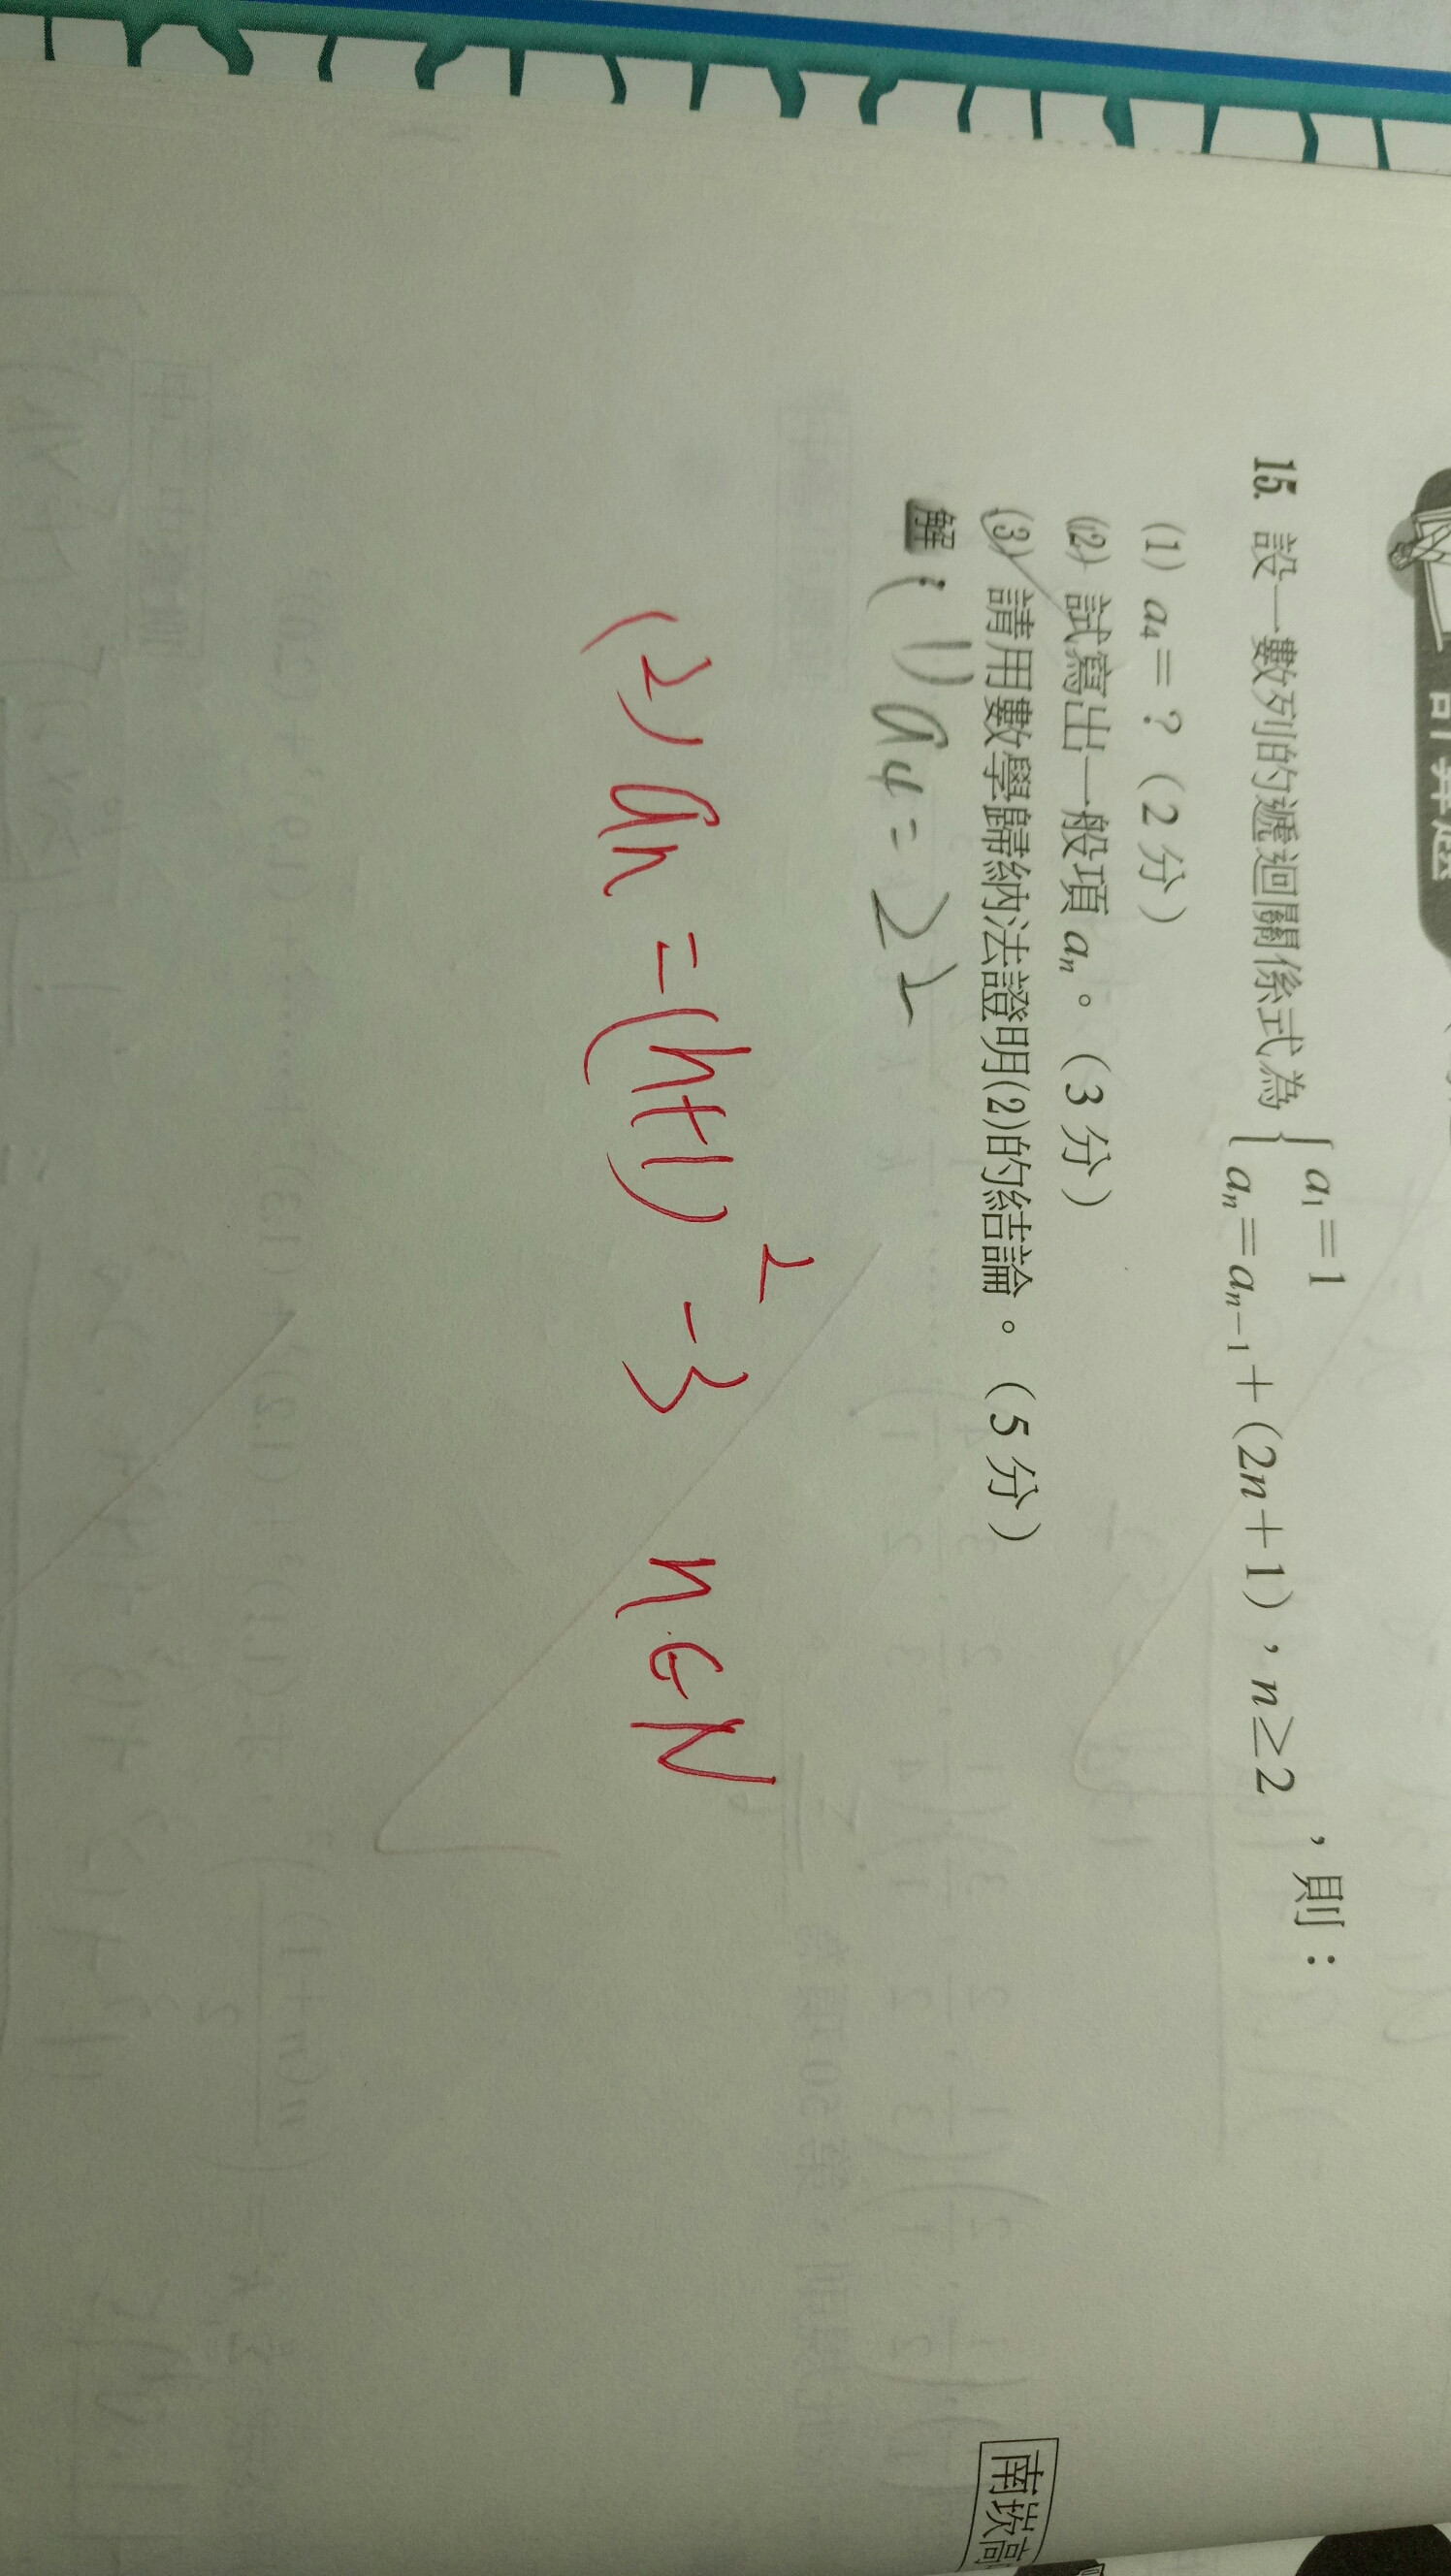 15. 設一數列的遞迴關係式為 { a₁=1
aₙ=aₙ₋₁+(2n+1),n≥2 ,則:
(1) a₄=?(2分)
(2) 試寫出一般項 aₙ。(3分)
(3) 請用數學歸納法證明(2)的結論。(5分)
南崁高
解:(1) a₄=22
(2) aₙ=(n+1)²-3 n∈N